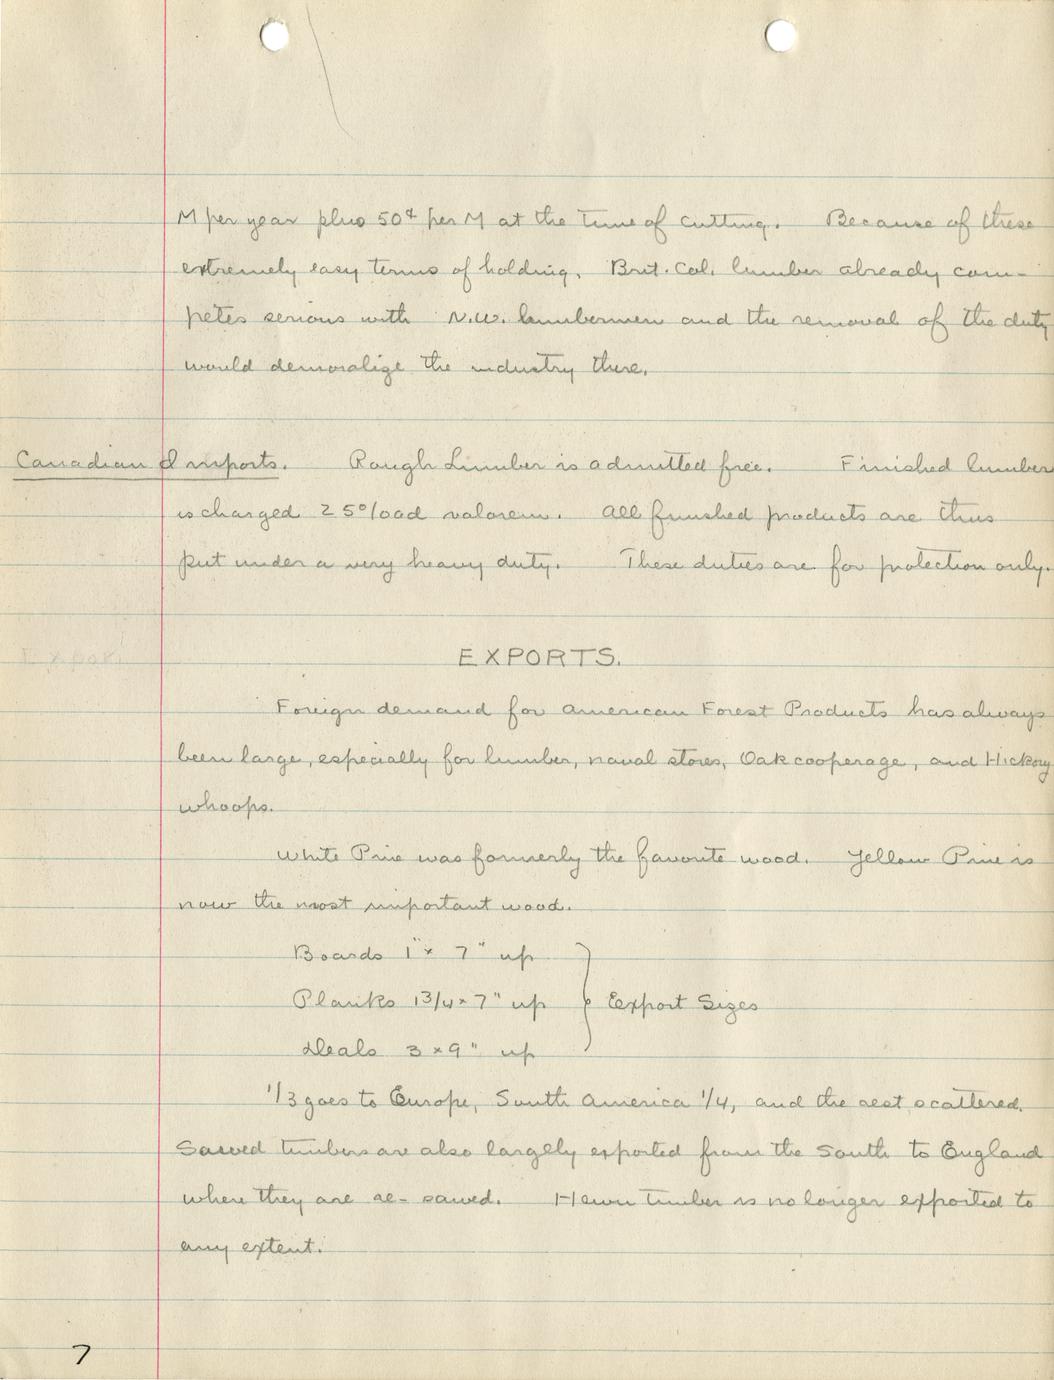 M per year plus 50¢ per M at the time of cutting. Because of these
extremely easy terms of holding, Brit. Col. lumber already com-
petes serious with N.W. lumbermen and the removal of the duty
would demoralize the industry there.
Canadian Imports. Rough Lumber is admitted free. Finished lumber
is charged 25% ad valorem. All finished products are thus
put under a very heavy duty. These duties are for protection only.
Export
EXPORTS.
Foreign demand for American Forest Products has always
been large, especially for lumber, naval stores, Oak cooperage, and Hickory
whoops.
White Pine was formerly the favorite wood. Yellow Pine is
now the most important wood.
Boards 1" x 7" up
Planks 1 3/4 x 7" up } Export Sizes
Deals 3 x 9" up
1/3 goes to Europe, South America 1/4, and the rest scattered.
Sawed timbers are also largely exported from the South to England
where they are re-sawed. Hewn timber is no longer exported to
any extent.
7